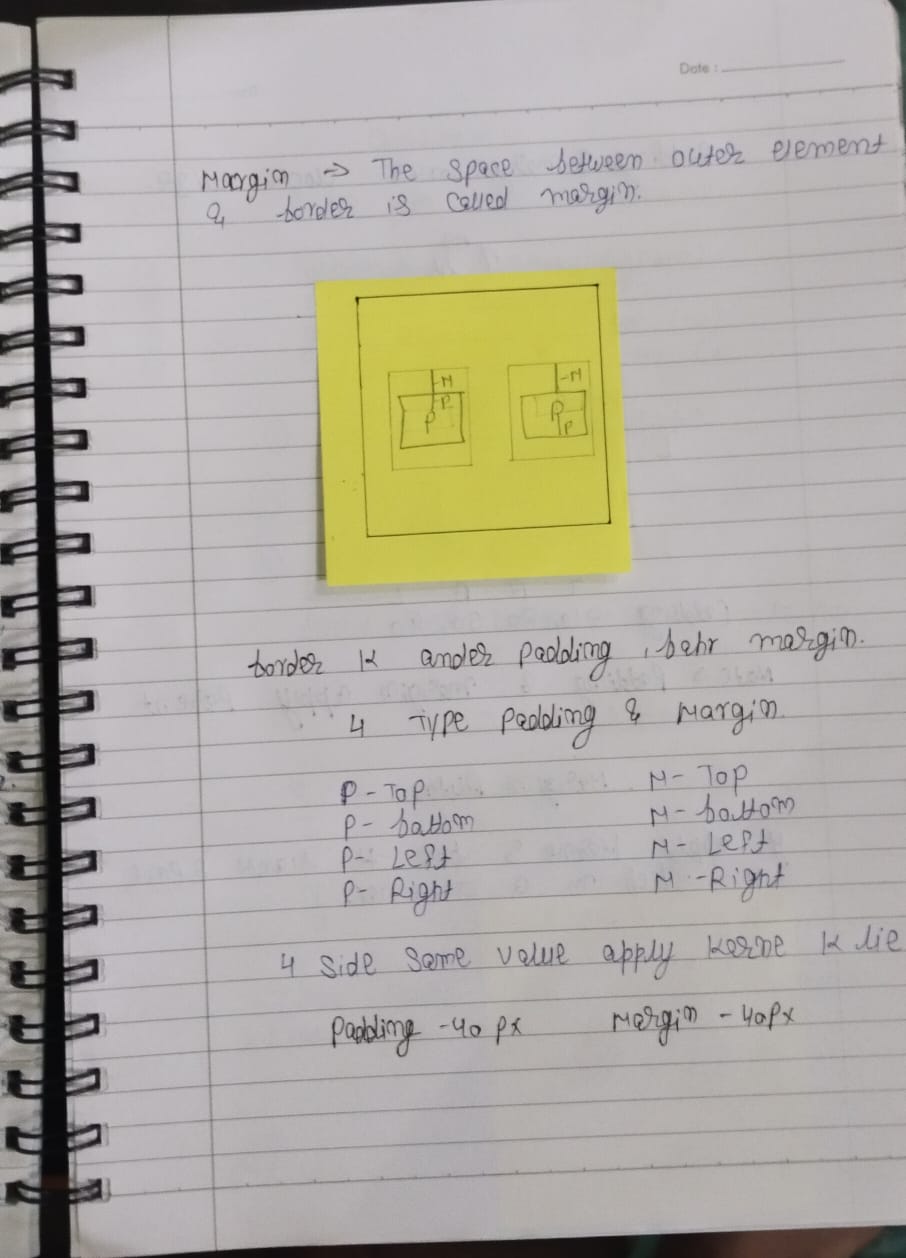 Date :
Margin ⇒ The space between outer element
& border is called margin.
-M
P
P
-M
P
P
border K ander Padding , bahr margin.
4 Type Padding & Margin
P - Top M - Top
P - bottom M - bottom
P - Left M - Left
P - Right M - Right
4 Side Same value apply karne K lie
Padding - 40 px Margin - 40px